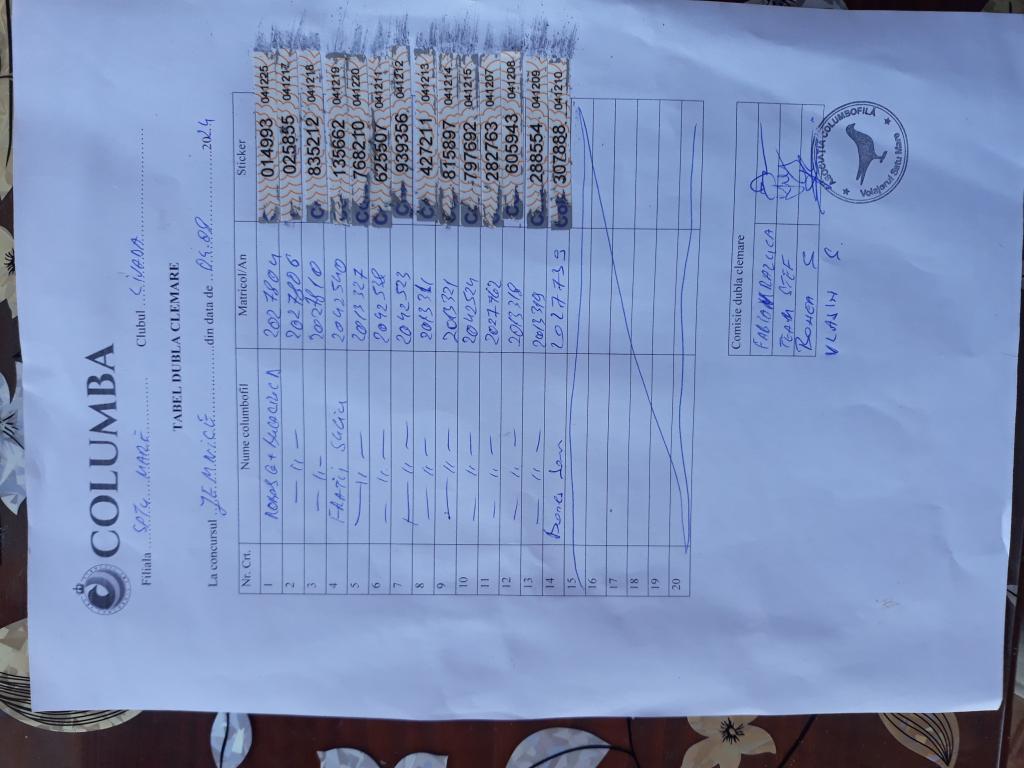 COLUMBA
Filiala SATU MARE Clubul
TABEL DUBLA CLEMARE
La concursul JEMNICE din data de 04.08 2024
Nr. Crt. Nume columbofil Matricol/An Sticker
1 2027804 014993 041225
2 — 11 — 2027806 025855 041217
3 — 11 — 835212 041218
4 FRATII SUCIU 2042540 135662 041219
5 — 11 — 2013327 768210 041220
6 — 11 — 2042538 625507 041211
7 — 11 — 2042533 939356 041212
8 — 11 — 427211 041213
9 — 11 — 2013321 815897 041214
10 — 11 — 2042524 797692 041215
11 — 11 — 2027762 282763 041207
12 — 11 — 2013318 605943 041208
13 — 11 — 2013319 288554 041209
14 Bonea Dan 2027739 307888 041210
15
16
17
18
19
20
Comisie dubla clemare
FABIAN RALUCA
TEABA STEF
BONEA S
VLASIN S.
ASOCIATIA COLUMBOFILĂ
Voiajorul Satu Mare